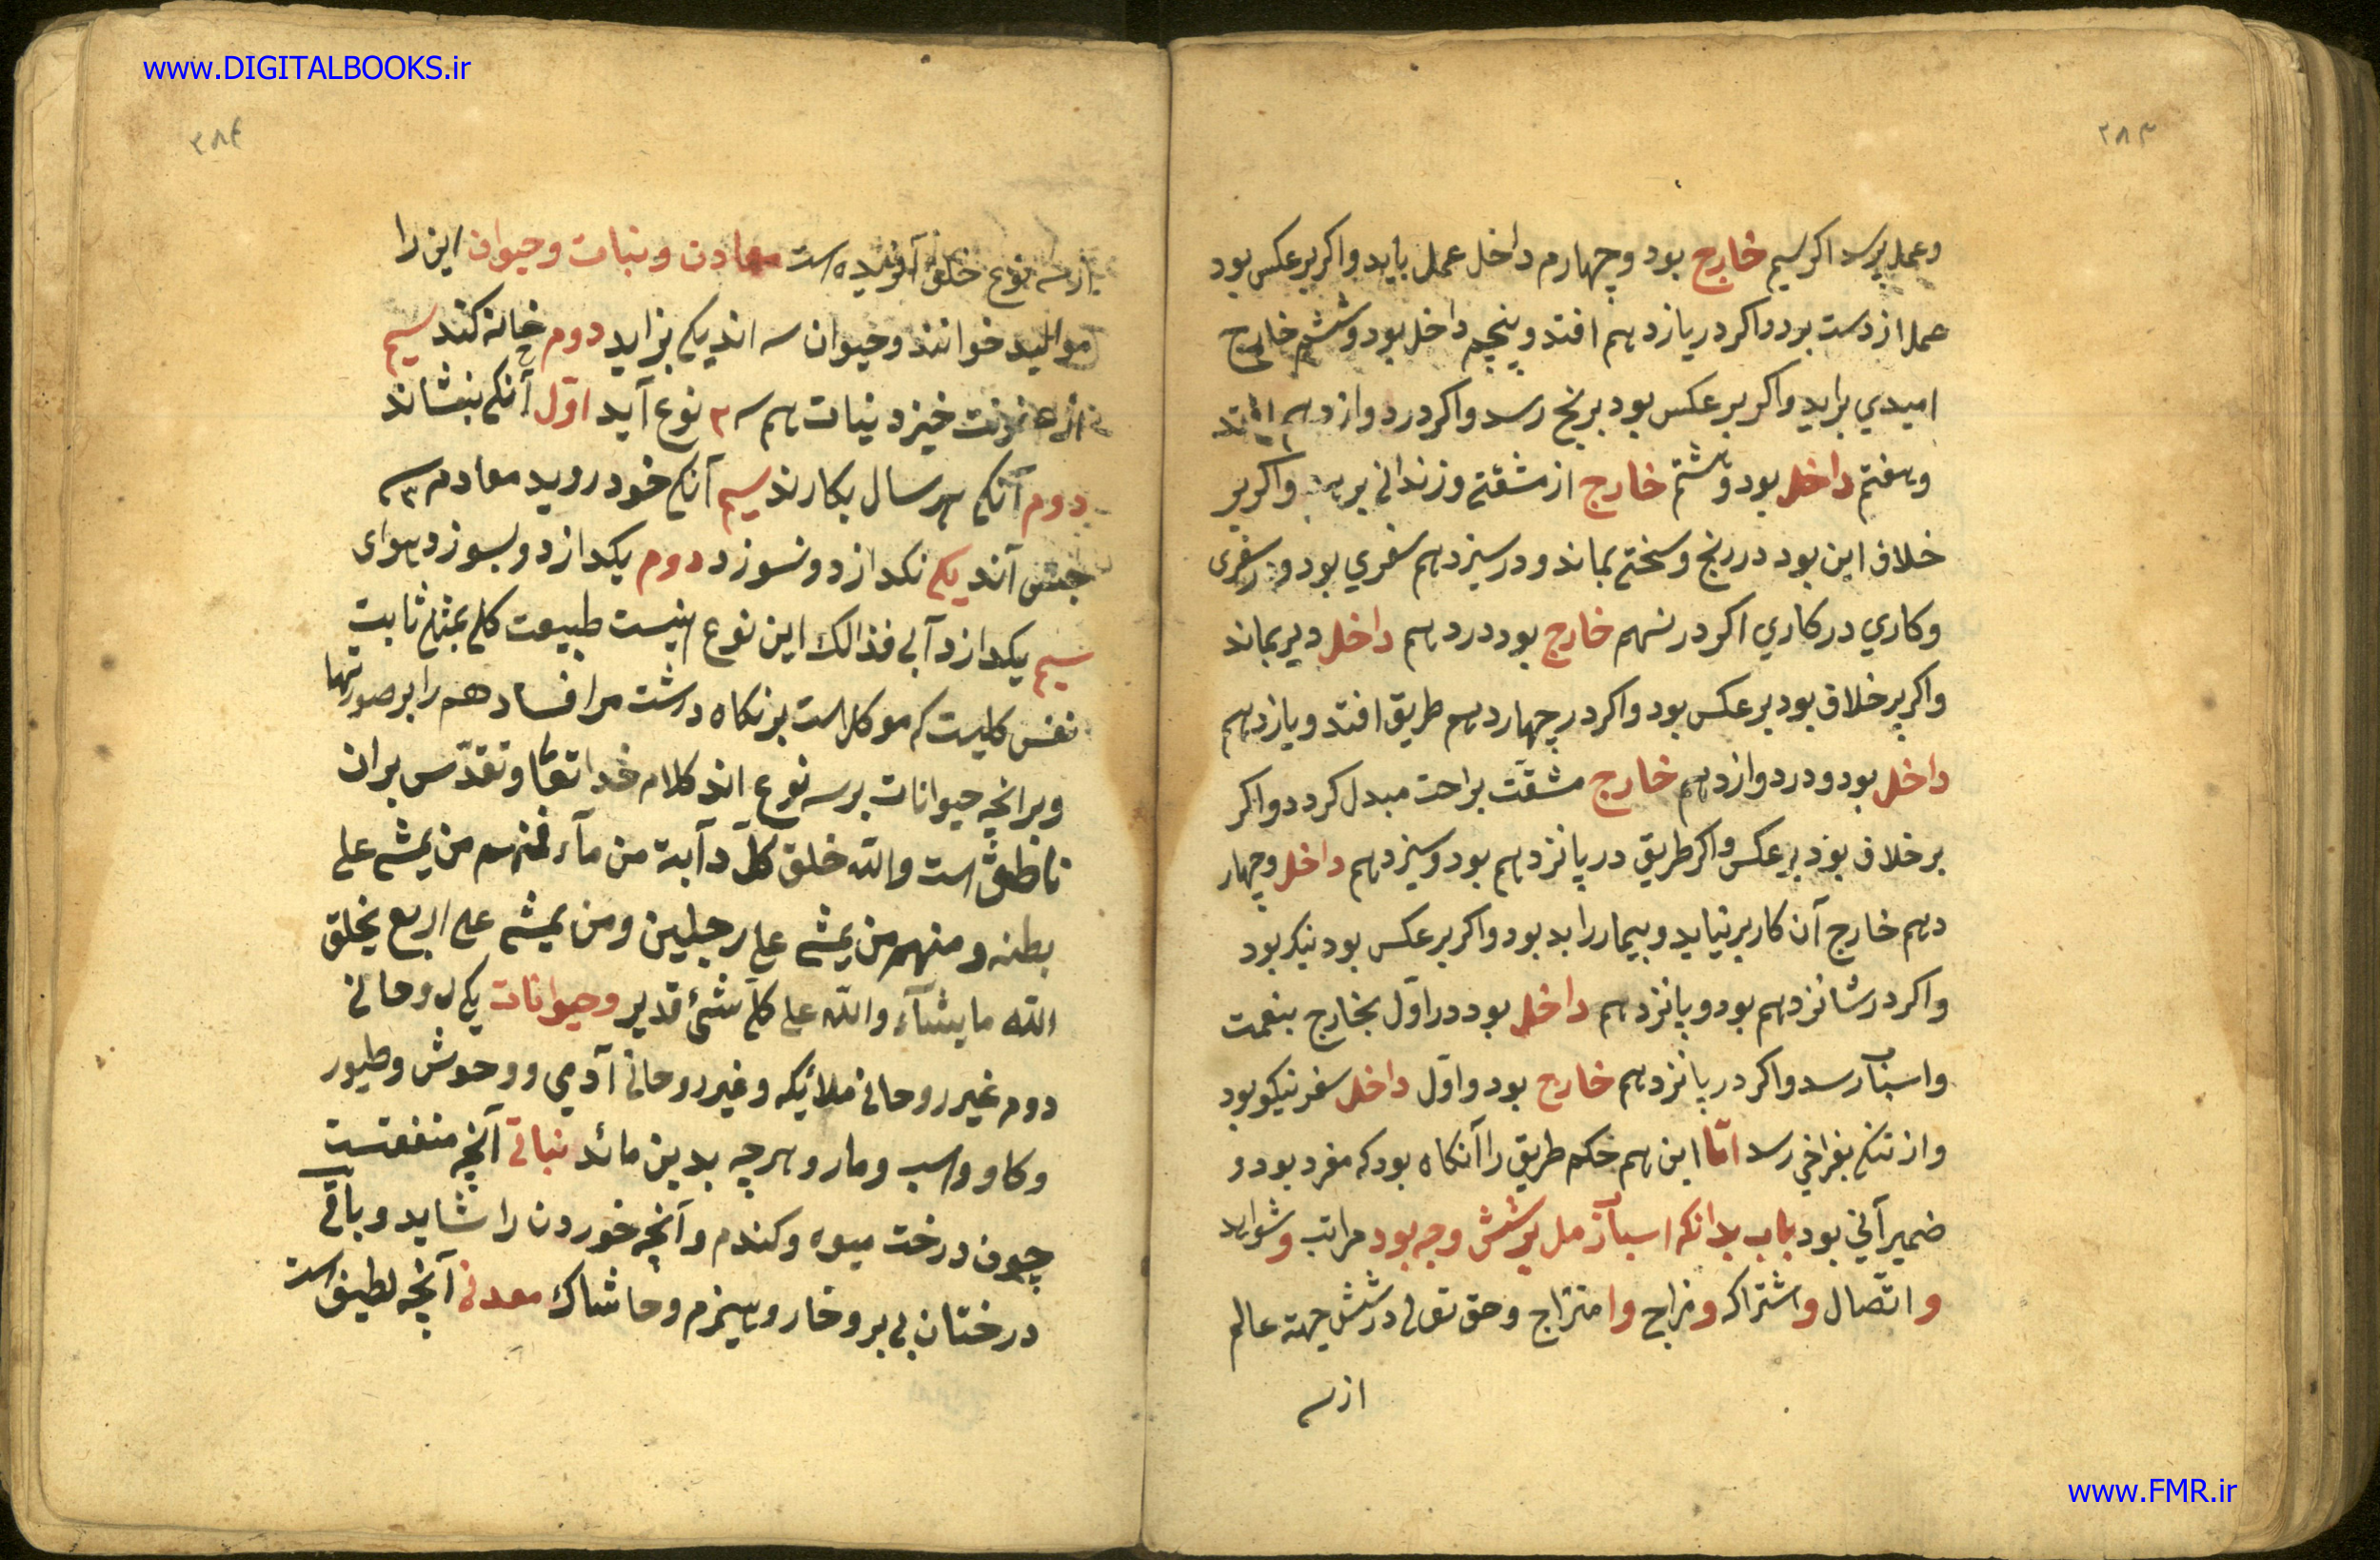 www.DIGITALBOOKS.ir
۲۸۳
وعمل پرسد اکر سیم خارج بود وچهارم داخل عمل یابد واکر برعکس بود
عمل از دست برد واکر در یازدهم افتد وپنجم داخل بود وششم خارج
امیدي براید واکر برعکس بود برنج رسد واکر در دوازدهم افتد
وهفتم داخل بود وهشتم خارج از مشقتی وزندانی برهد واکر بر
خلاف این بود در رنج وسختی بماند ودر سیزدهم سفري بود ودر سفری
وکاري در کاري اکر در نهم خارج بود در دهم داخل دیر بماند
واکر بر خلاف بود برعکس بود واکر در چهاردهم طریق افتد ویازدهم
داخل بود ودر دوازدهم خارج مشقّت براحت مبدل کردد واکر
برخلاف بود برعکس واکر طریق در پانزدهم بود وسیزدهم داخل وچهار
دهم خارج آن کار برنیاید وبیمار را بد بود واکر برعکس بود نیک بود
واکر در شانزدهم بود وپانزدهم داخل بود در اوّل بخارج بنعمت
واسباب رسد واکر در پانزدهم خارج بود واوّل داخل سفر نیکو بود
واز تنکی بفراخي رسد امّا این هم حکم طریق را آنکاه بود که مفرد بود و
ضمیر آني بود باب بدانکه اسباب رمل بر شش وجه بود مراتب وشواهد
و اتّصال واشتراک ومزاج وامتزاج وحق تعالی در شش جهت عالم
از سه
۲۸۴
از سه نوع خلق آفریده است معادن ونبات وحیوان این را
موالید خوانند وحیوان سه اند یکی بزاید دوم خانه کند سیم
از عفونت خیزد نبات هم سه ۳ نوع آید اوّل آنکه بنشاند
دوم آنکه هر سال بکارند سیم آنکه خود روید معادن سه
جنس آند یکی نکدازد ونسوزد دوم بکدازد وبسوزد هوای
سیم بکدازد آبی فذالک این نوع اینست طبیعت کلی بمثل ثابت
نفس کلیست که موکل است بر نکاه داشت مر افساد هم را بر صورتها
وبرانچه حیوانات بر سه نوع اند کلام خدا تعالی وتقدّس بران
ناطق است والله خلق کلّ دآبة من مآء فمنهم من یمشی علی
بطنه ومنهم من یمشی علی رجلین ومن یمشی علی اربع یخلق
الله مایشآء والله علی کلّ شئ قدیر وحیوانات یکی روحانی
دوم غیر روحانی ملائیکه وغیر روحانی آدمي ووحوش وطیور
وکاو واسب ومار وهرچه بدین مائد نباتی آنچه منفعتست
چون درخت میوه وکندم وآنچه خوردن را شاید وباقی
درختان بی بر وخار وهیزم وخاشاک معدنی آنچه لطیف است
www.FMR.ir